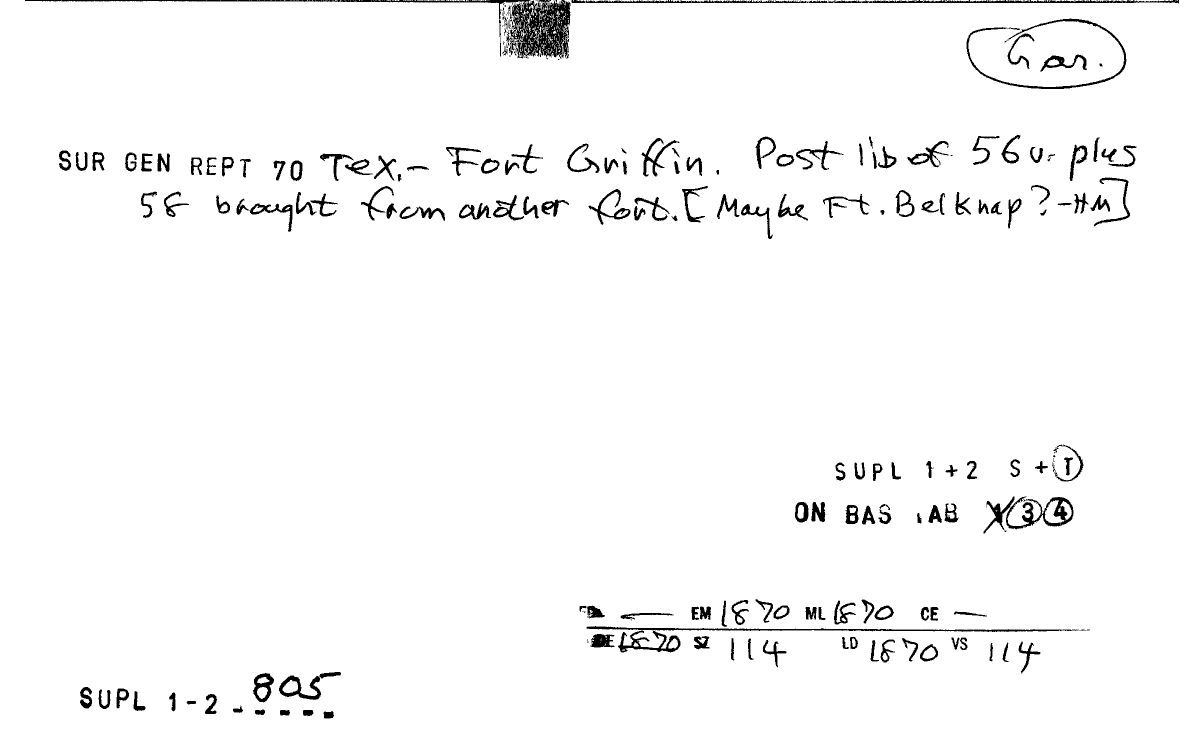 Gar.
SUR GEN REPT 70 Tex.- Fort Griffin. Post lib of 56v. plus
58 brought from another fort. [Maybe Ft. Belknap? -HM]
SUPL 1+2 S + T
ON BAS AB X 3 4
— EM 1870 ML 1870 CE —
DE 1870 SZ 114 LD 1870 VS 114
SUPL 1-2 - 805